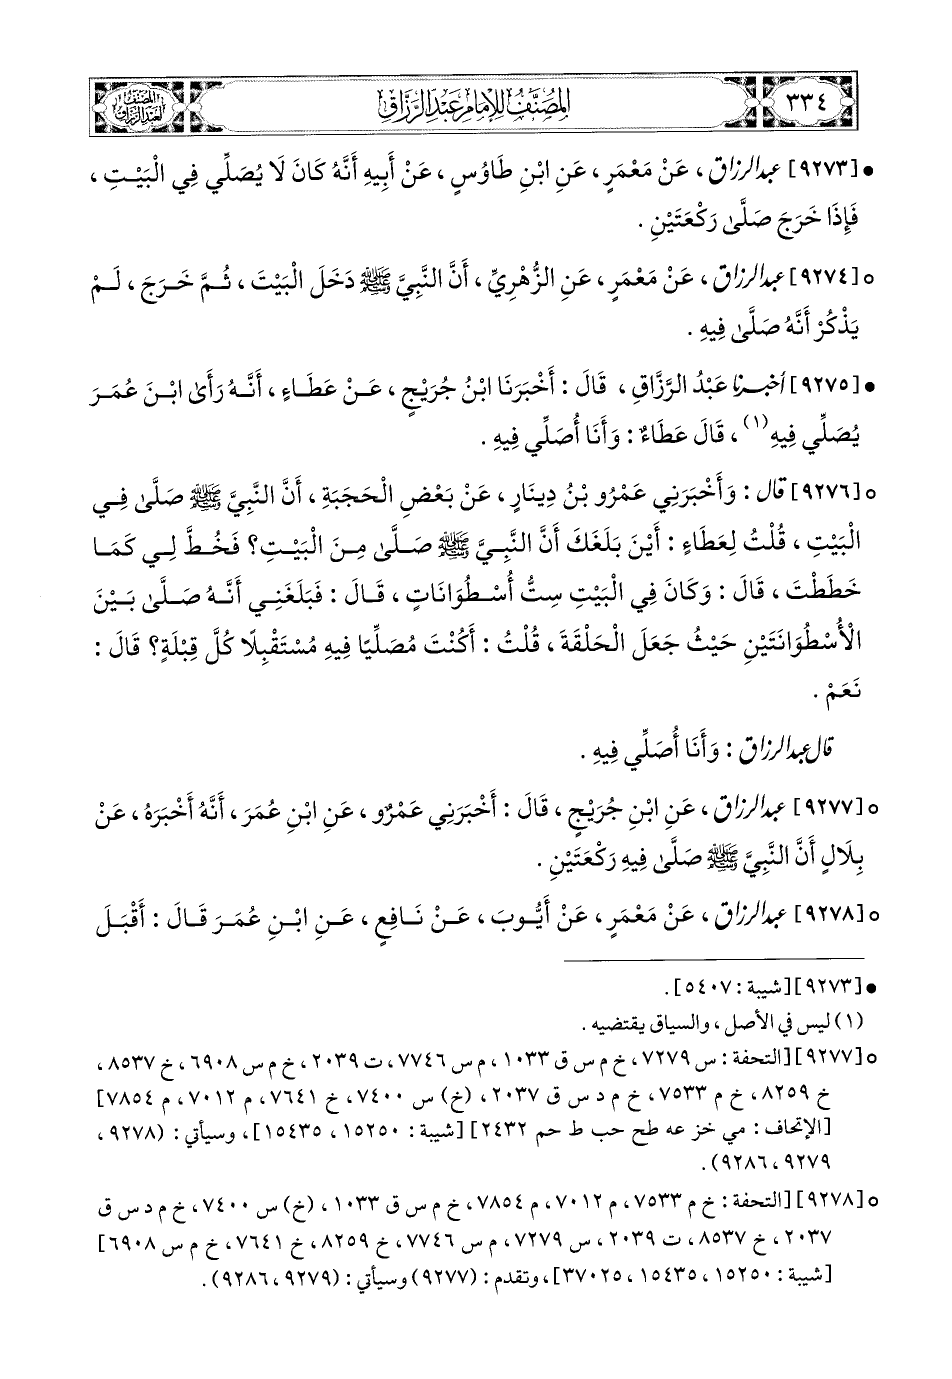 ٣٣٤
المُصَنَّفُ لِلإِمَامِ عَبْدِ الرَّزَّاقِ
المصنف
لعبد الرزاق
• [٩٢٧٣] عبد الرزاق، عَنْ مَعْمَرٍ، عَنِ ابْنِ طَاوُسٍ، عَنْ أَبِيهِ أَنَّهُ كَانَ لَا يُصَلِّي فِي الْبَيْتِ،
فَإِذَا خَرَجَ صَلَّىٰ رَكْعَتَيْنِ.
○ [٩٢٧٤] عبد الرزاق، عَنْ مَعْمَرٍ، عَنِ الزُّهْرِيِّ، أَنَّ النَّبِيَّ ﷺ دَخَلَ الْبَيْتَ، ثُمَّ خَرَجَ، لَمْ
يَذْكُرْ أَنَّهُ صَلَّىٰ فِيهِ.
• [٩٢٧٥] أخبرنا عَبْدُ الرَّزَّاقِ، قَالَ: أَخْبَرَنَا ابْنُ جُرَيْجٍ، عَنْ عَطَاءٍ، أَنَّهُ رَأَىٰ ابْنَ عُمَرَ
يُصَلِّي فِيهِ(١)، قَالَ عَطَاءٌ: وَأَنَا أُصَلِّي فِيهِ.
○ [٩٢٧٦] قال: وَأَخْبَرَنِي عَمْرُو بْنُ دِينَارٍ، عَنْ بَعْضِ الْحَجَبَةِ، أَنَّ النَّبِيَّ ﷺ صَلَّىٰ فِي
الْبَيْتِ، قُلْتُ لِعَطَاءٍ: أَيْنَ بَلَغَكَ أَنَّ النَّبِيَّ ﷺ صَلَّىٰ مِنَ الْبَيْتِ؟ فَخُطَّ لِي كَمَا
خَطَطْتَ، قَالَ: وَكَانَ فِي الْبَيْتِ سِتُّ أُسْطُوَانَاتٍ، قَالَ: فَبَلَغَنِي أَنَّهُ صَلَّىٰ بَيْنَ
الْأُسْطُوَانَتَيْنِ حَيْثُ جَعَلَ الْحَلْقَةَ، قُلْتُ: أَكُنْتَ مُصَلِّيًا فِيهِ مُسْتَقْبِلًا كُلَّ قِبْلَةٍ؟ قَالَ:
نَعَمْ.
قال عبد الرزاق: وَأَنَا أُصَلِّي فِيهِ.
○ [٩٢٧٧] عبد الرزاق، عَنِ ابْنِ جُرَيْجٍ، قَالَ: أَخْبَرَنِي عَمْرٌو، عَنِ ابْنِ عُمَرَ، أَنَّهُ أَخْبَرَهُ، عَنْ
بِلَالٍ أَنَّ النَّبِيَّ ﷺ صَلَّىٰ فِيهِ رَكْعَتَيْنِ.
○ [٩٢٧٨] عبد الرزاق، عَنْ مَعْمَرٍ، عَنْ أَيُّوبَ، عَنْ نَافِعٍ، عَنِ ابْنِ عُمَرَ قَالَ: أَقْبَلَ
• [٩٢٧٣] [شيبة: ٥٤٠٧].
(١) ليس في الأصل، والسياق يقتضيه.
○ [٩٢٧٧] [التحفة: س ٧٢٧٩، خ م س ق ١٠٣٣، م س ٧٧٤٦، ت ٢٠٣٩، خ م س ٦٩٠٨، خ ٨٥٣٧،
خ ٨٢٥٩، خ م ٧٥٣٣، خ م د س ق ٢٠٣٧، (خ) س ٧٤٠٠، خ ٧٦٤١، م ٧٠١٢، م ٧٨٥٤]
[الإتحاف: مي خز عه طح حب ط حم ٢٤٣٢] [شيبة: ١٥٢٥٠، ١٥٤٣٥]، وسيأتي: (٩٢٧٨،
٩٢٧٩، ٩٢٨٦).
○ [٩٢٧٨] [التحفة: خ م ٧٥٣٣، م ٧٠١٢، م ٧٨٥٤، خ م س ق ١٠٣٣، (خ) س ٧٤٠٠، خ م د س ق
٢٠٣٧، خ ٨٥٣٧، ت ٢٠٣٩، س ٧٢٧٩، م س ٧٧٤٦، خ ٨٢٥٩، خ ٧٦٤١، خ م س ٦٩٠٨]
[شيبة: ١٥٢٥٠، ١٥٤٣٥، ٣٧٠٢٥]، وتقدم: (٩٢٧٧) وسيأتي: (٩٢٧٩، ٩٢٨٦).